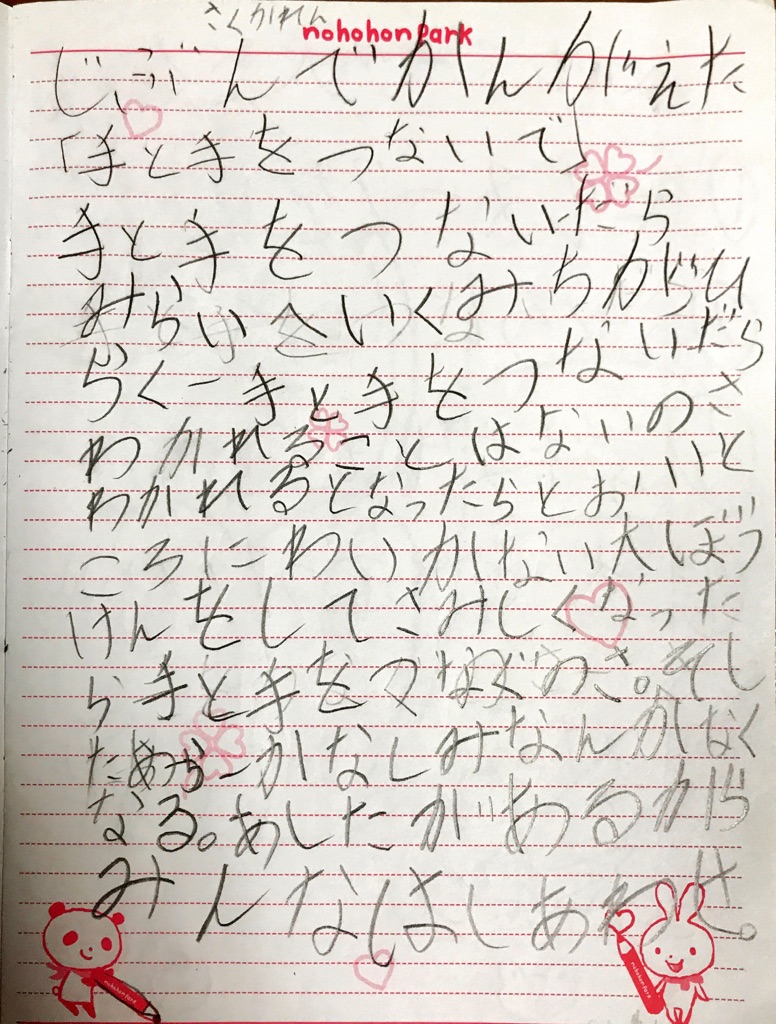 さくかれん
nohohon park
じぶんでかんがえた
「手と手をつないで」
手と手をつないだら
みらいへいくみちがひ
らくー手と手をつないだら
わかれることはないのさ
わかれるとなったらとおいと
ころにわいかない大ぼう
けんをしてさみしくなった
ら手と手をつなぐのさ。そし
たあかーかなしみなんかなく
なる。あしたがあるから
みんなしはしあわせ。
nohohon park
nohohon park